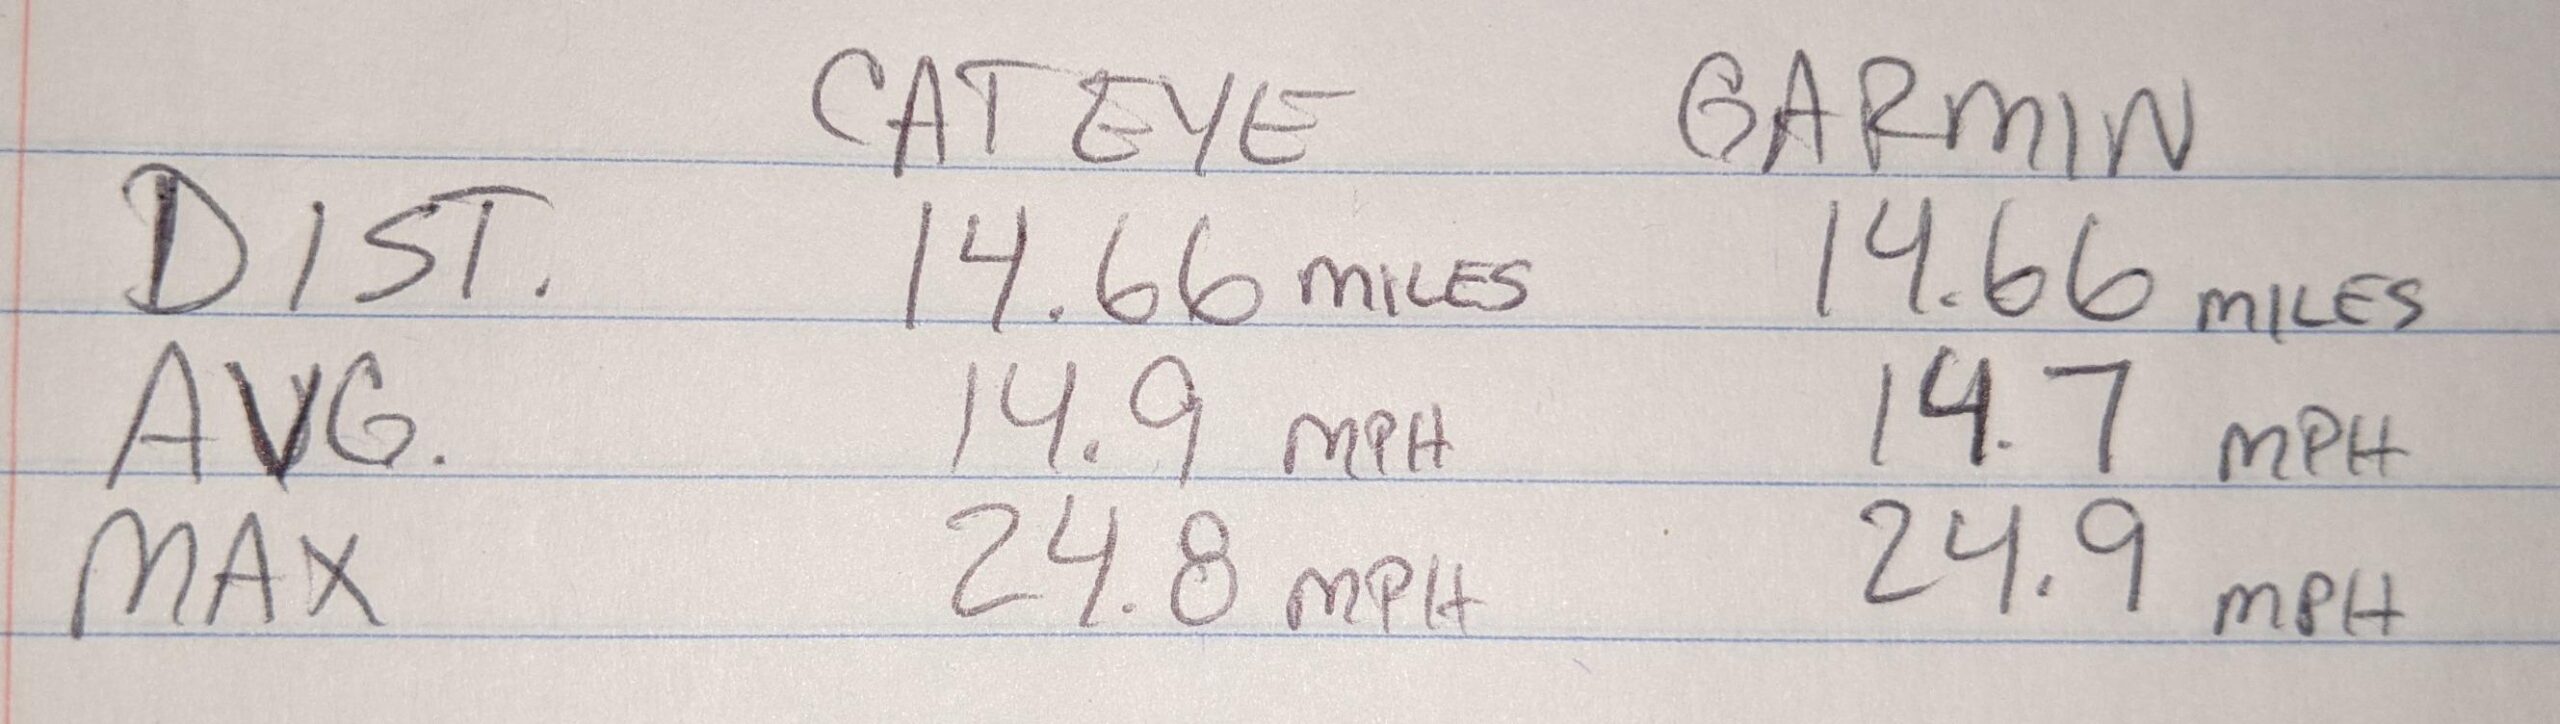 CATEYE GARMIN
DIST. 14.66 MILES 14.66 MILES
AVG. 14.9 MPH 14.7 MPH
MAX 24.8 MPH 24.9 MPH